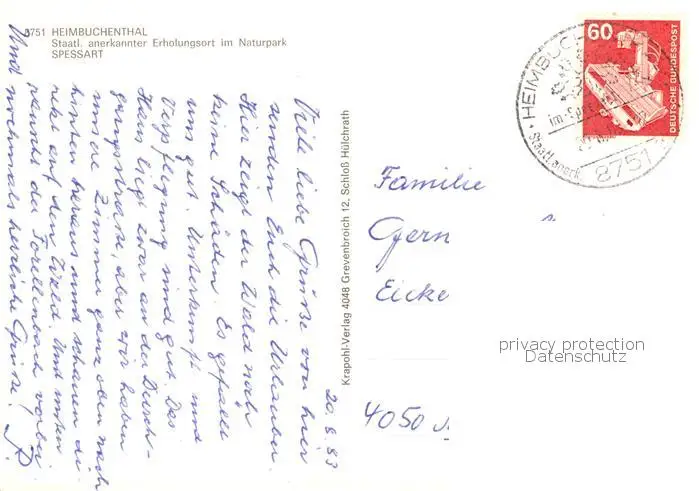 8751 HEIMBUCHENTHAL
Staatl. anerkannter Erholungsort im Naturpark
SPESSART
20.8.83
Viele liebe Grüße von hier
senden Euch die Urlauber.
Hier zeigt der Wald noch
keine Schäden. Es gefällt
uns gut. Unterkunft und
Verpflegung sind gut. Das
Haus liegt zwar an der Durch-
gangsstraße, aber wir haben
unsere Zimmer ganz oben nach
hinten heraus und schauen di-
rekt auf den Wald. Und unten
rauscht der Forellenbach vorbei.
Und nochmals herzliche Grüße.
Krapohl-Verlag 4048 Grevenbroich 12, Schloß Hülchrath
60
DEUTSCHE BUNDESPOST
HEIMBUC
im Spes
Staatl. anerk
8751
Familie
Gern
Eicke
4050
privacy protection
Datenschutz